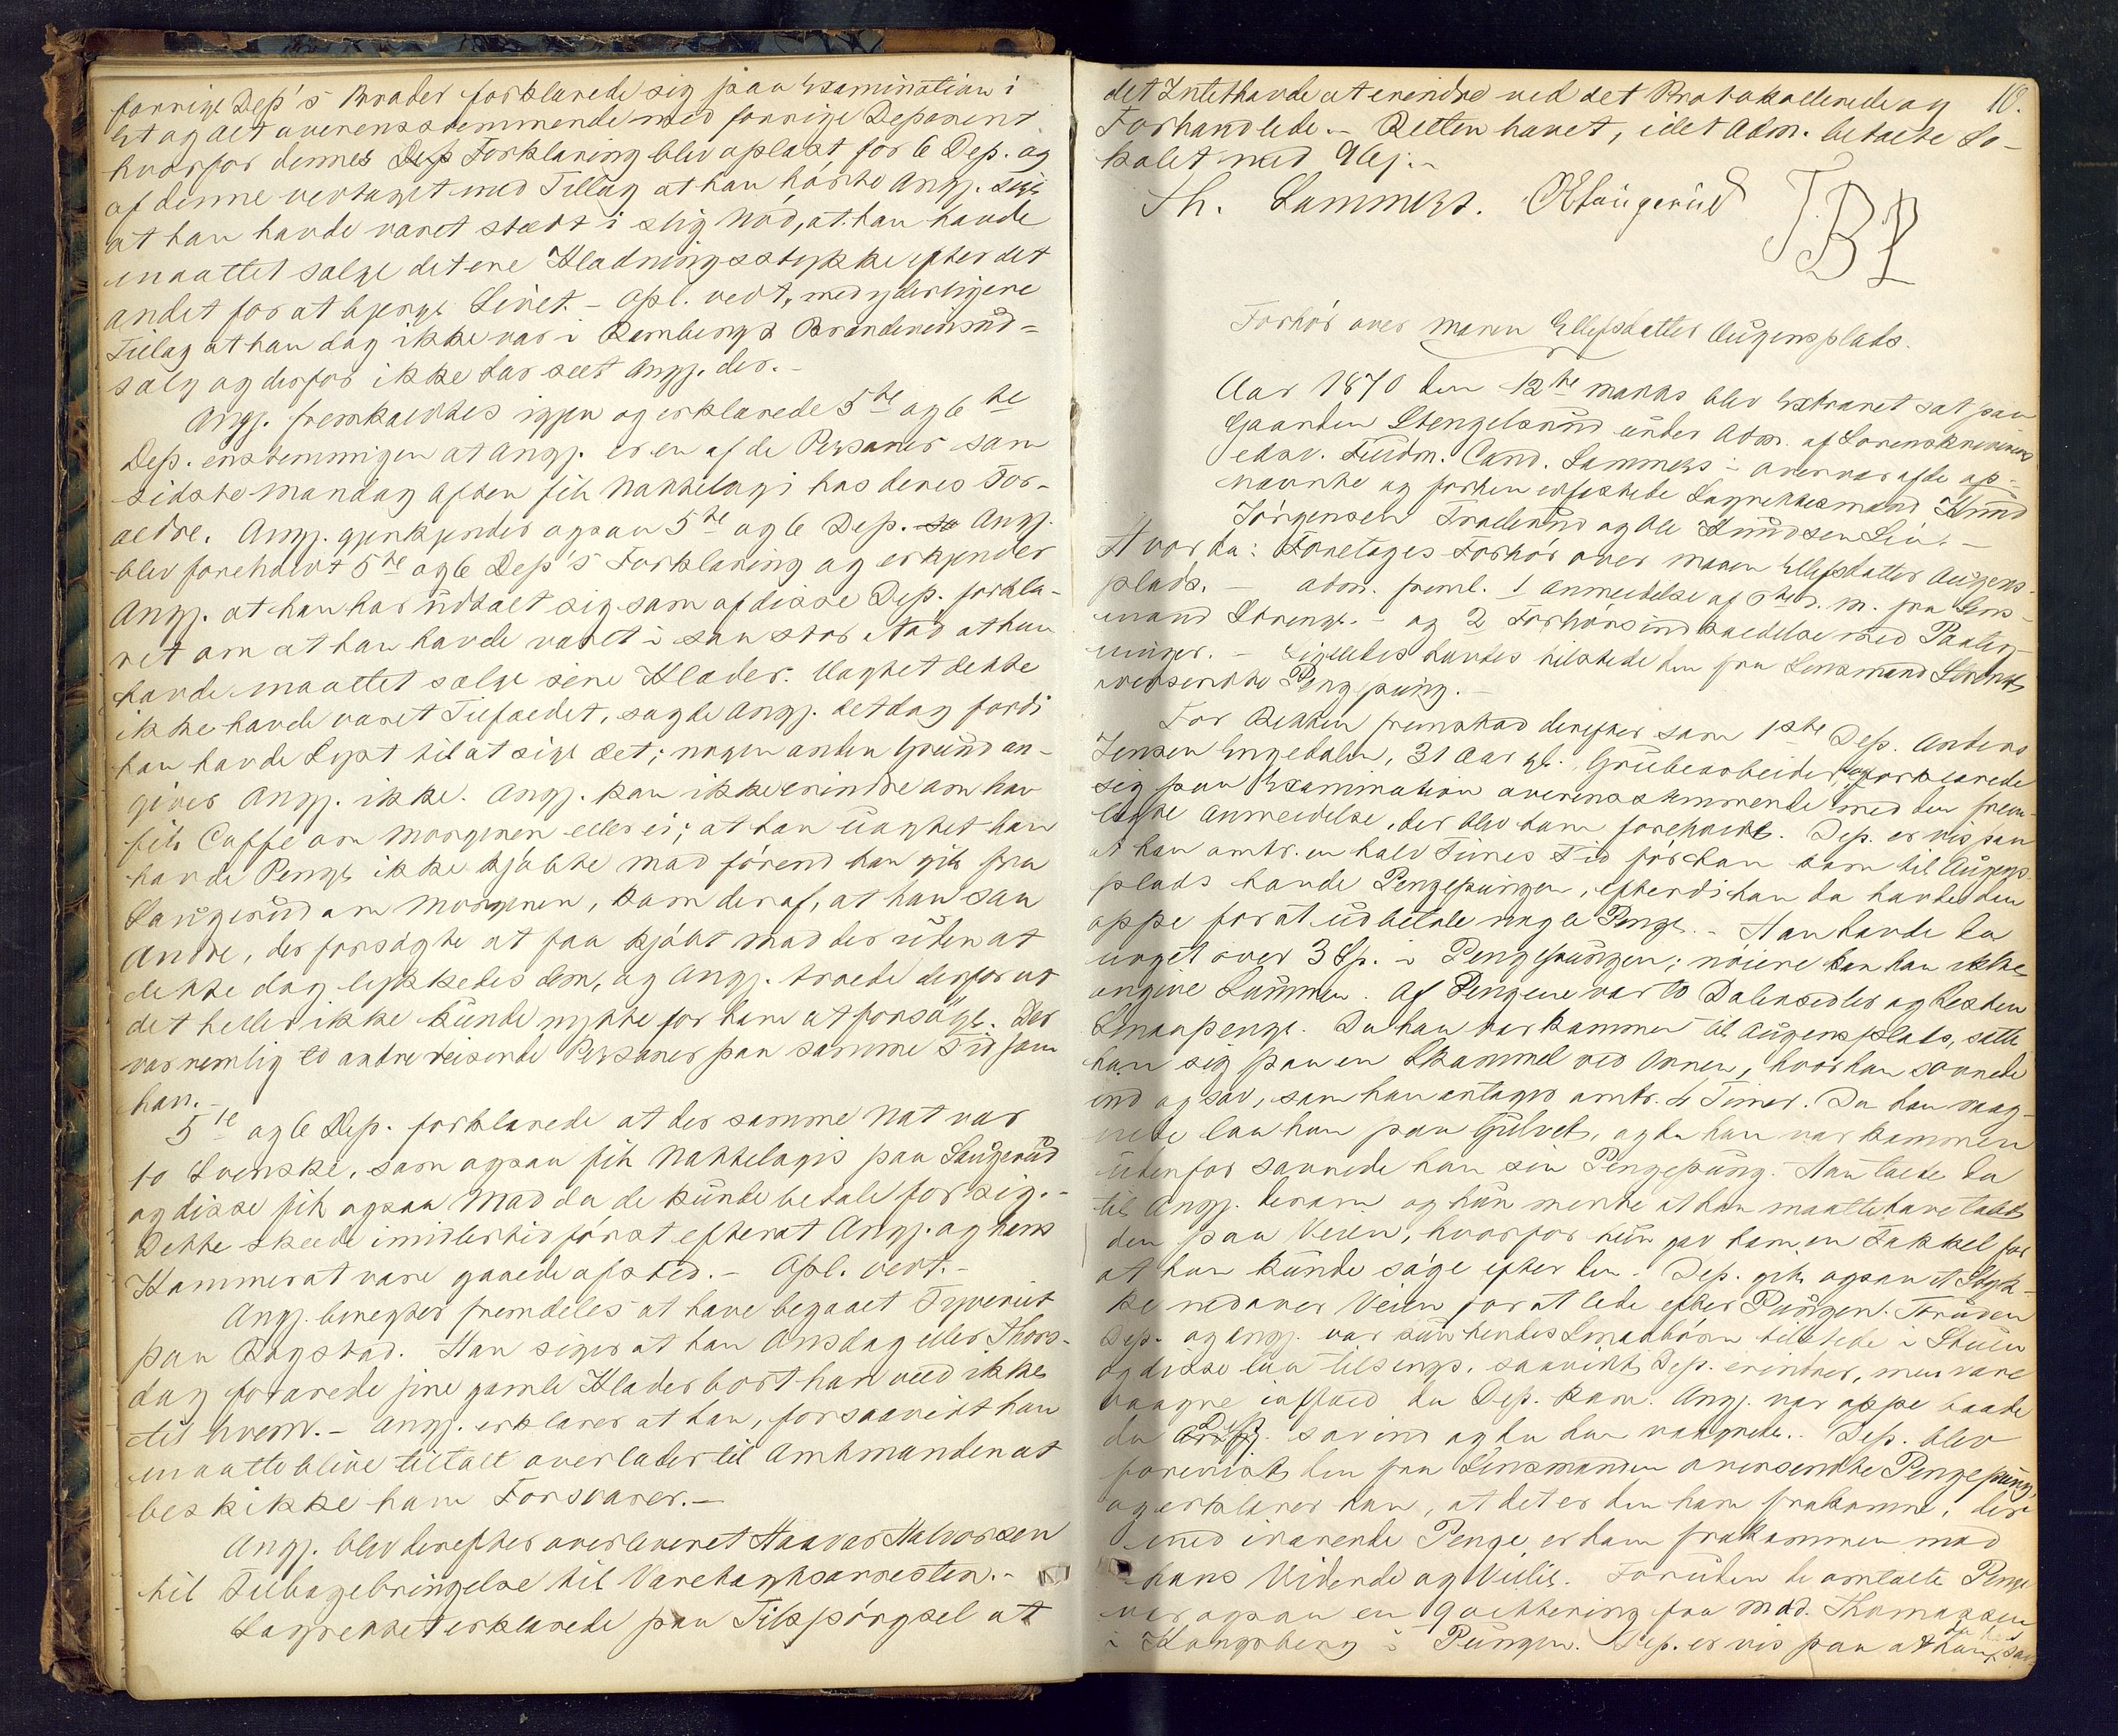 forrige Dep's Broder forklarede sig paa Examination i
Et og Alt overensstemmende med forrige Deponent
hvorfor dennes Dep Forklaring blev oplæst for 6 Dep. og
af denne vedtaget med Tillæg at han hørte Ang. sige
at han havde været stedt i slig Nød, at han havde
maattet sælge det ene Klædningsstykke efter det
andet for at bjerge Livet. - Opl. vedt. med yderligere
Tillæg at han dog ikke var i Rambergs Brændevinsud=
salg og derfor ikke har seet Angj. der. -
Angj. fremkaldtes igjen og erklærede 5te og 6te
Dep. enstemmigen at Angj. er en af de Personer som
sidste Mandag Aften fik Nattelogi hos deres For-
ældre. Angj. gjenkjender ogsaa 5te og 6 Dep. Angj.
blev foreholdt 5te og 6 Dep's Forklaring og erkjender
Angj. at han har udtalt sig som af disse Dep. forkla-
ret om at han havde været i saa stor Nød at han
havde maattet sælge sine Klæder. Uagtet dette
ikke havde været Tilfældet, sagde Angj. det dog fordi
han havde Lyst til at sige det; nogen anden Grund an-
giver Angj. ikke. Angj. kan ikke erindre om han
fik Caffe om Morgenen eller ei; at han uagtet han
havde Penge ikke kjøbte Mad førend han gik fra
Laugerud om Morgenen, kom deraf, at han saa
Andre, der forsøgte at faa kjøbt Mad der uden at
dette dog lykkedes dem, og Angj. troede derfor at
det heller ikke kunde nytte for ham at forsøge. Der
var nemlig to andre reisende Personer paa samme Tid som
han. -
5te og 6 Dep. forklarede at der samme Nat var
to Svenske, som ogsaa fik Nattelogis paa Laugerud
og disse fik ogsaa Mad da de kunde betale for sig. -
Dette skede imidlertid først efterat Angj. og hans
Kammerat vare gaaede afsted. - Opl. vedt. -
Angj. benegter fremdeles at have begaaet Tyveriet
paa Rogstad. Han siger at han Onsdag eller Thors-
dag forærede sine gamle Klæder bort han veed ikke
til hvem. - Angj. erklærer at han, forsaavidt han
maatte blive tiltalt overlader til Amtmanden at
beskikke ham Forsvarer. -
Angj. blev derefter overleveret Haavor Halvorsen
til Tilbagebringelse til Varetægtsarresten. -
Lagrettet erklærede paa Tilspørgsel at
10.
det Intet havde at erindre ved det Protokollerede og
Forhandlede. - Retten hævet, idet Adm. betalte Lo-
kalet med
Th. Lammers. OLaugerud
JBP
Forhør over Maren Ellefsdatter Augensplads.
Aar 1870 den 12te Marts blev Extraret sat paa
Gaarden Stengelsrud under Adm. af Sorenskriverens
edsv. Fuldm. Cand. Lammers - overvær af de op-
nævnte og forhen edfæstede Lagrettesmænd Knud
Jørgensen Traelerud og Ole Knudsen Lia. -
Hvorda: Foretoges Forhør over Maren Ellefsdatter Augens-
plads. - Adm. freml. 1 Anmeldelse af d. M. fra Lens-
mand Strenge. - og 2 Forhørsindkaldelse med Paateg-
ninger. - Ligeledes havdes tilstede den fra Lensmand Strenge
oversendte Pengepung. -
For Retten fremstod derefter som 1ste Dep. Anders
Jensen Engedalen, 31 Aar gl. Grubearbeider, og forklarede
sig paa Examination overensstemmende med den frem-
lagte Anmeldelse, der blev ham foreholdt. Dep. er vis paa
at han omtr. en halv Times Tid før han kom til Augens-
plads havde Pengepungen, efterdi han da havde den
oppe for at udbetale nogle Penge. - Han havde da
noget over 3 Sp. i Pengepungen; nøiere kan han ikke
angive Summen. Af Pengene var to Dalersedler og Resten
Smaapenge. Da han var kommen til Augensplads, satte
han sig paa en Skammel ved Arnen, hvor han sovnede
ind og sov, som han antager omtr. 4 Timer. Da han vaag-
nede laa han paa Gulvet, og da han var kommen
udenfor savnede han sin Pengepung. Han talte da
til Angj. derom og hun mente at han maatte have tabt
den paa Veien, hvorfor hun gav ham en Fakkel for
at han kunde søge efter den. Dep. gik ogsaa et Styk-
ke nedover Veien for at lede efter Pungen. Foruden
Dep. og Angj. var kun hendes Smaabørn tilstede i Stuen
og disse laa tilsengs, saavidt Dep. erindrer, men vare
vaagne ialfald da Dep. kom. Angj. var oppe baade
da Dep. sov ind og da han vaagnede. Dep. blev
forevist den fra Lensmanden oversendte Pengepung
og erklærer han, at det er den ham frakomne, der
med iværende Penge er ham frakommen mod
hans Vidende og Villie. Foruden de omtalte Penge
var ogsaa en Qvittering fra Mad. Thomassen
i Kongsberg i Pungen. Dep. er vis paa at han